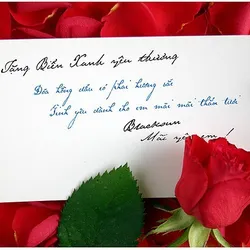 Tặng Biển Xanh yêu thương
Đóa hồng dẫu có phai hương sắc
Tình yêu dành cho em mãi mãi thắm tươi
Blacksun
Mãi yêu em !